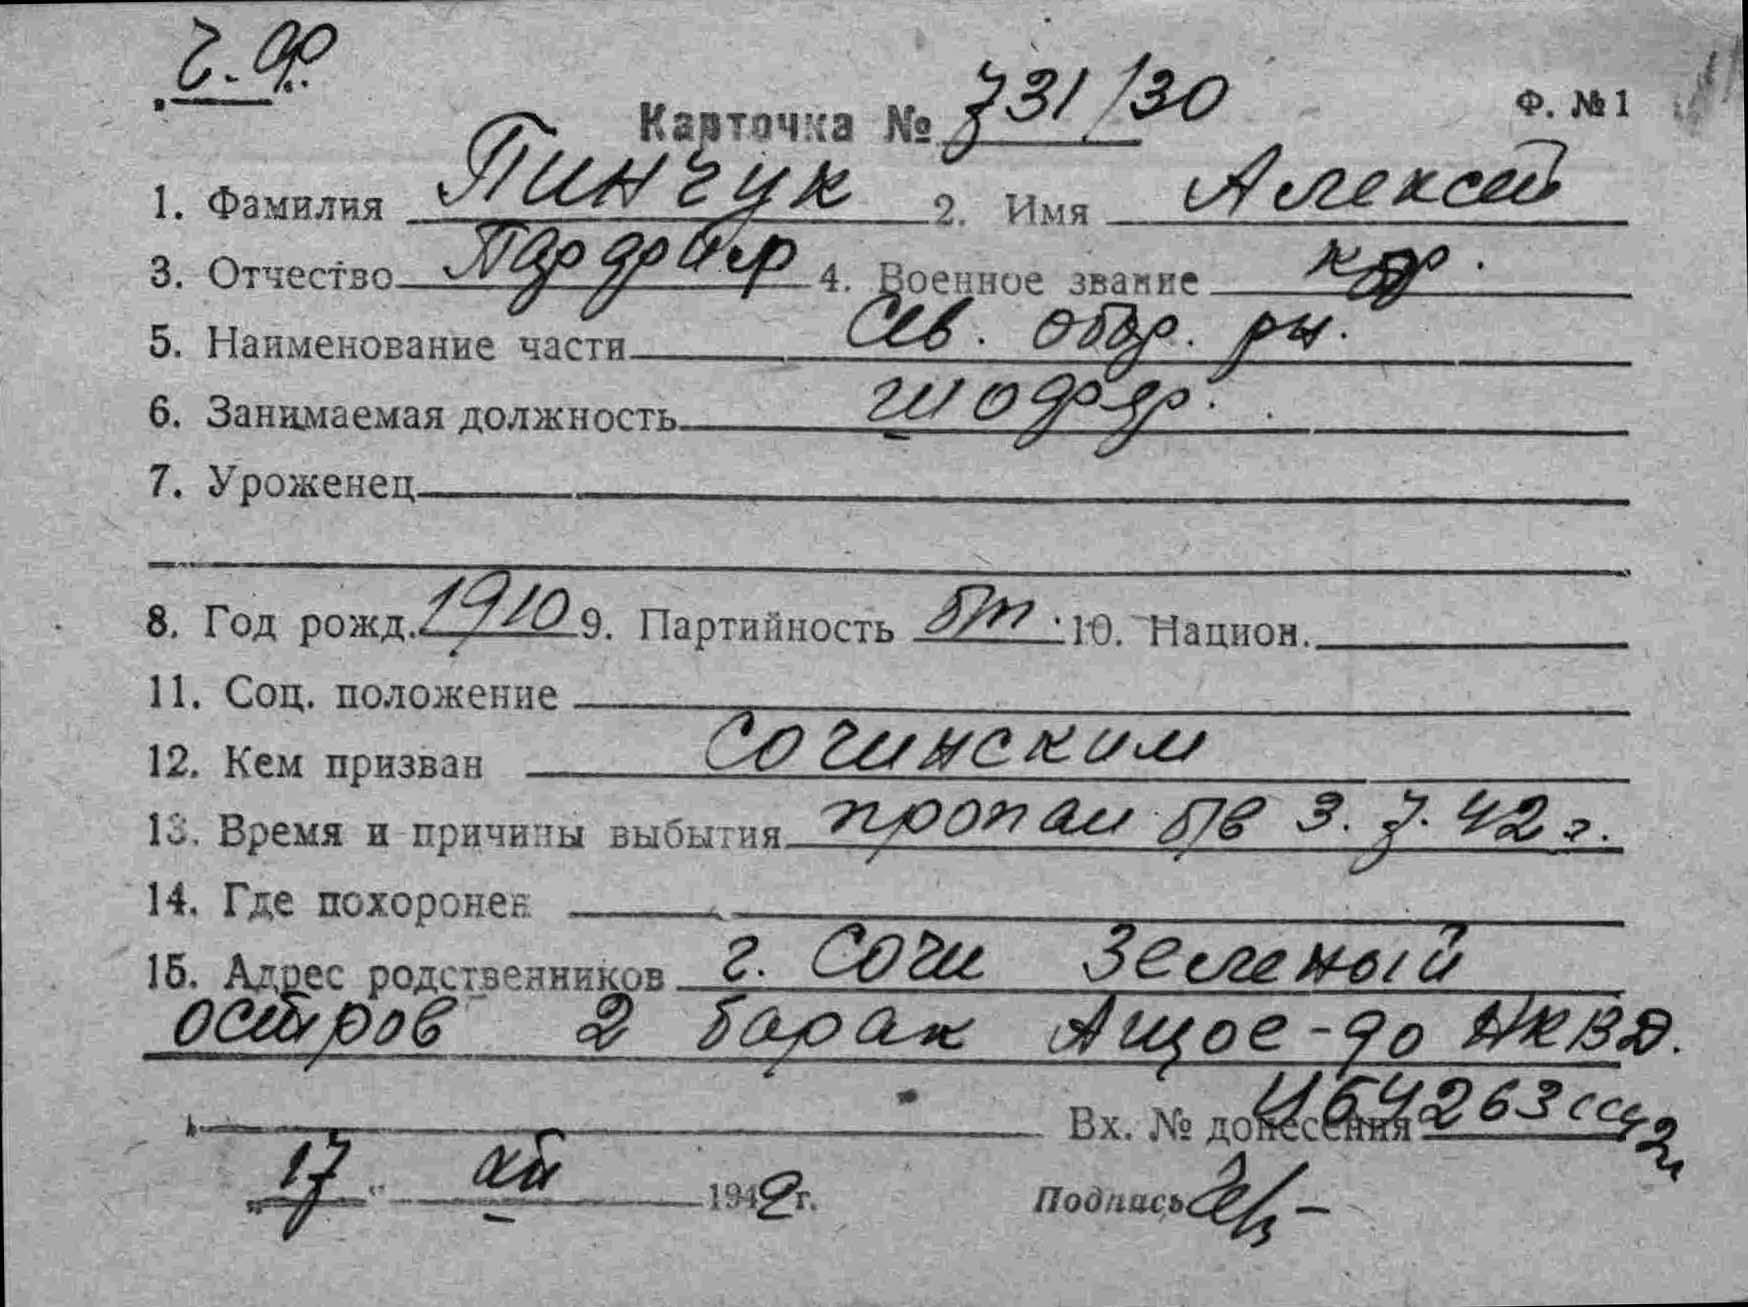 Ч. Ф.
Карточка № 731/30 Ф. № 1
1. Фамилия Пинчук 2. Имя Алексей
3. Отчество 4. Военное звание кр.
5. Наименование части Сев. обор. рн.
6. Занимаемая должность шофер.
7. Уроженец
8. Год рожд. 1910 9. Партийность б/п. 10. Национ.
11. Соц. положение
12. Кем призван Сочинским
13. Время и причины выбытия пропал б/в 3.7.42 г.
14. Где похоронен
15. Адрес родственников г. Сочи Зеленый
остров 2 барак НКВД.
Вх. № донесения
„17“ 1942 г. Подпись